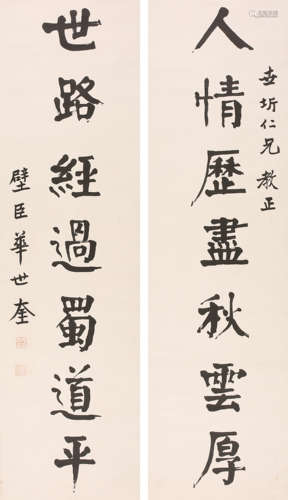 人情歷盡秋雲厚
仁兄教正
世路經過蜀道平
璧臣華世奎